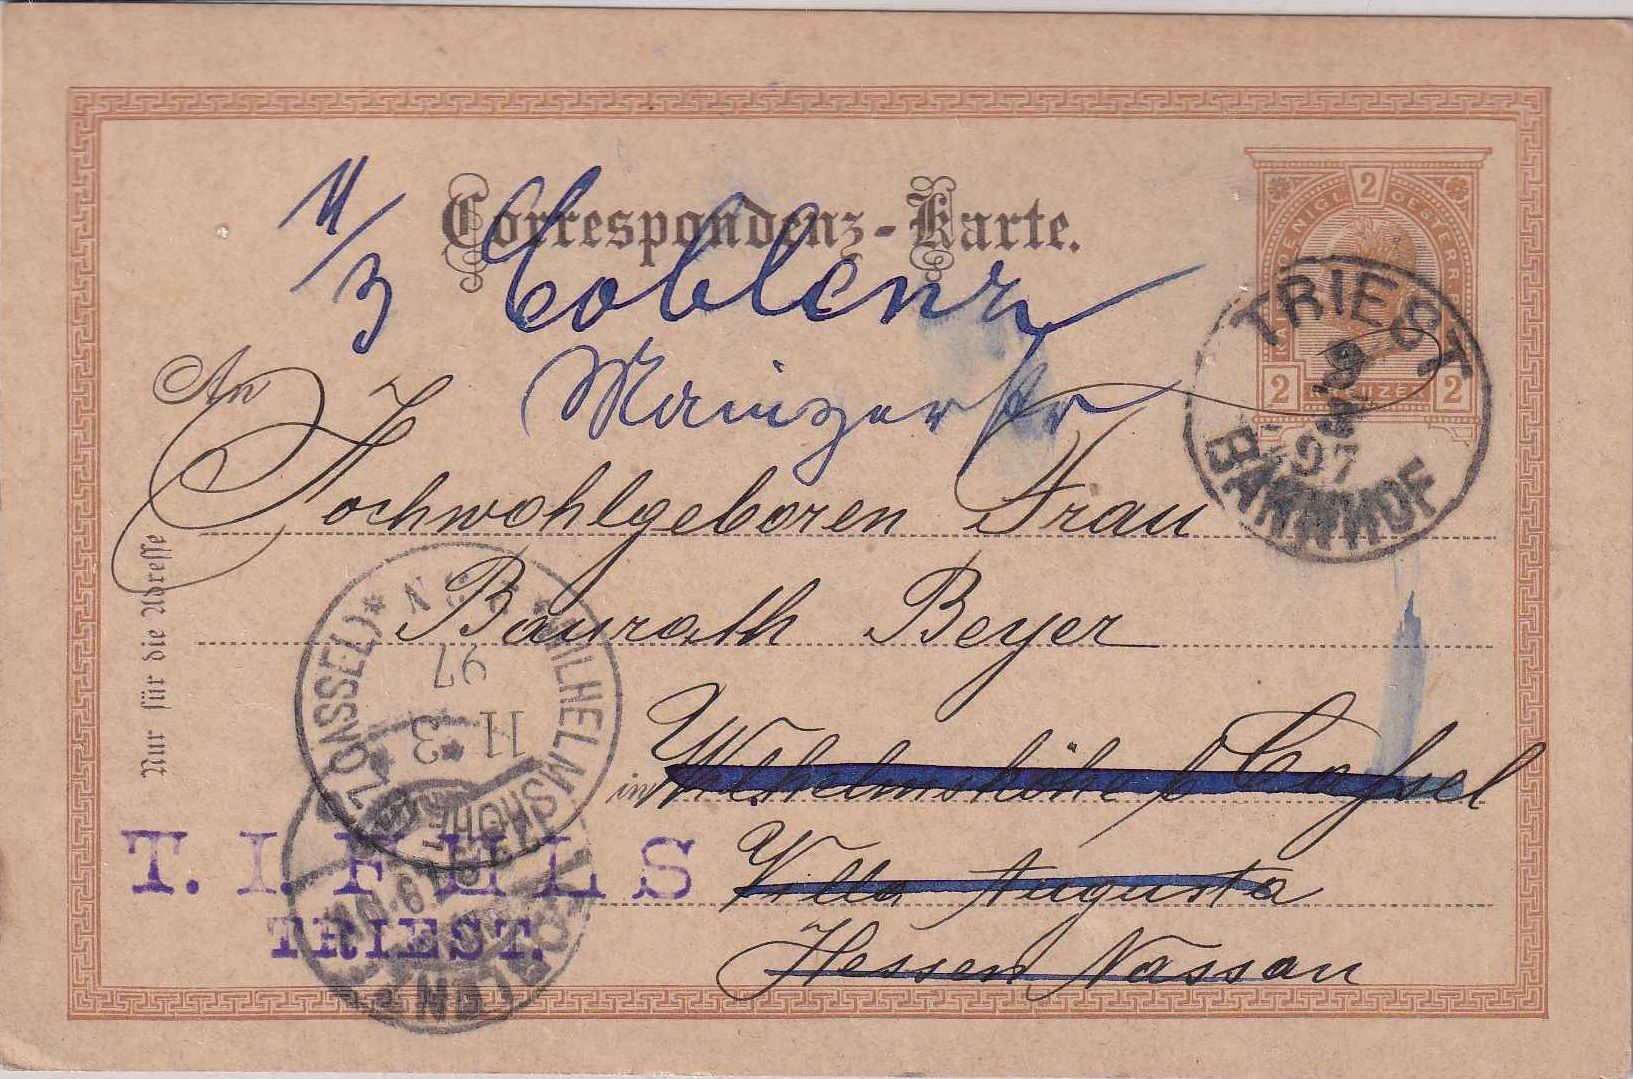 Correspondenz-Karte.
11/3 Coblenz
Mainzerstr
An
Hochwohlgeboren Frau
Baurath Beyer
in Wilhelmshöhe b Cassel
Villa Augusta
Hessen Nassau
Nur für die Adresse
2
2 2
TRIEST
9
97
BAHNHOF
* WILHELMSHÖHE (CASSEL) *
11 3
97
N
COBLENZ
T. I. FELS
TRIEST.